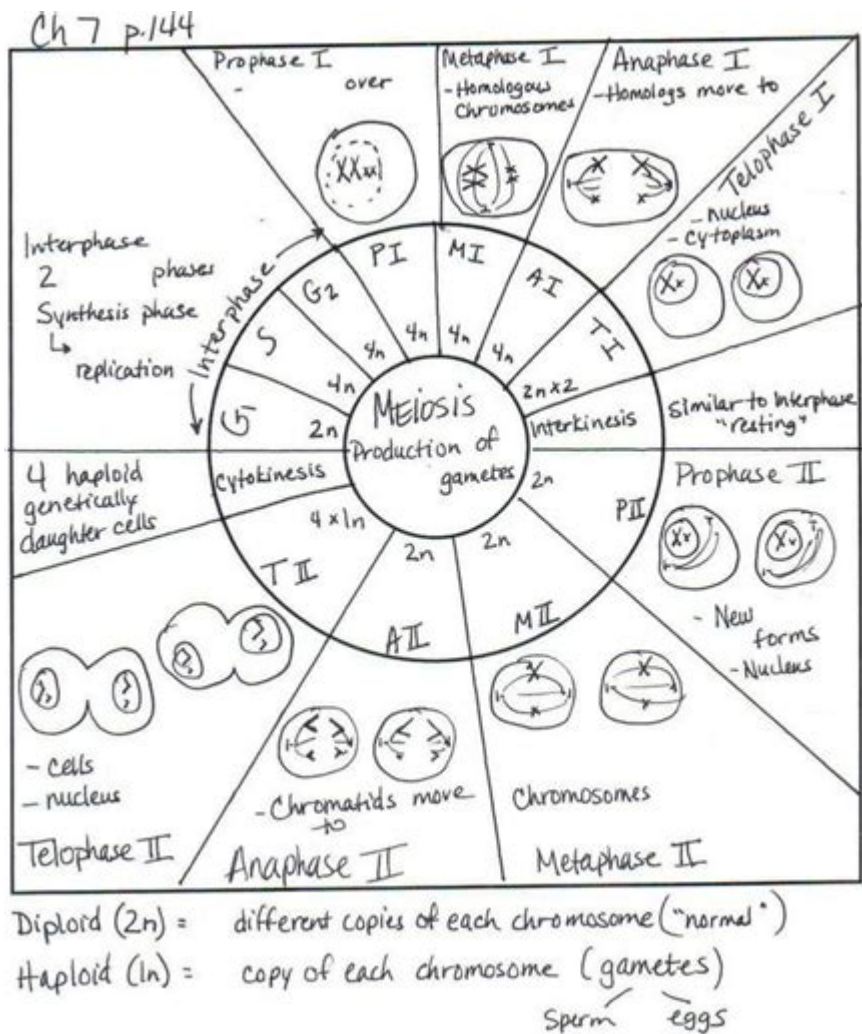 Ch 7 p.144
Prophase I
- over
Metaphase I
- Homologous
Chromosomes
Anaphase I
- Homologs move to
Telophase I
- nucleus
- cytoplasm
Interphase
2 phases
Synthesis phase
↳ replication
Interphase
G1
S
G2
PI
MI
AI
TI
2n
4n
4n
4n
4n
4n
2n x 2
Meiosis
Production of
gametes
Interkinesis
Similar to Interphase
"resting"
Prophase II
PII
2n
- New
forms
- Nucleus
MII
2n
Chromosomes
Metaphase II
AII
2n
- Chromatids move
to
Anaphase II
TII
4 x 1n
- cells
- nucleus
Telophase II
Cytokinesis
4 haploid
genetically
daughter cells
Diploid (2n) = different copies of each chromosome ("normal")
Haploid (1n) = copy of each chromosome (gametes)
Sperm eggs